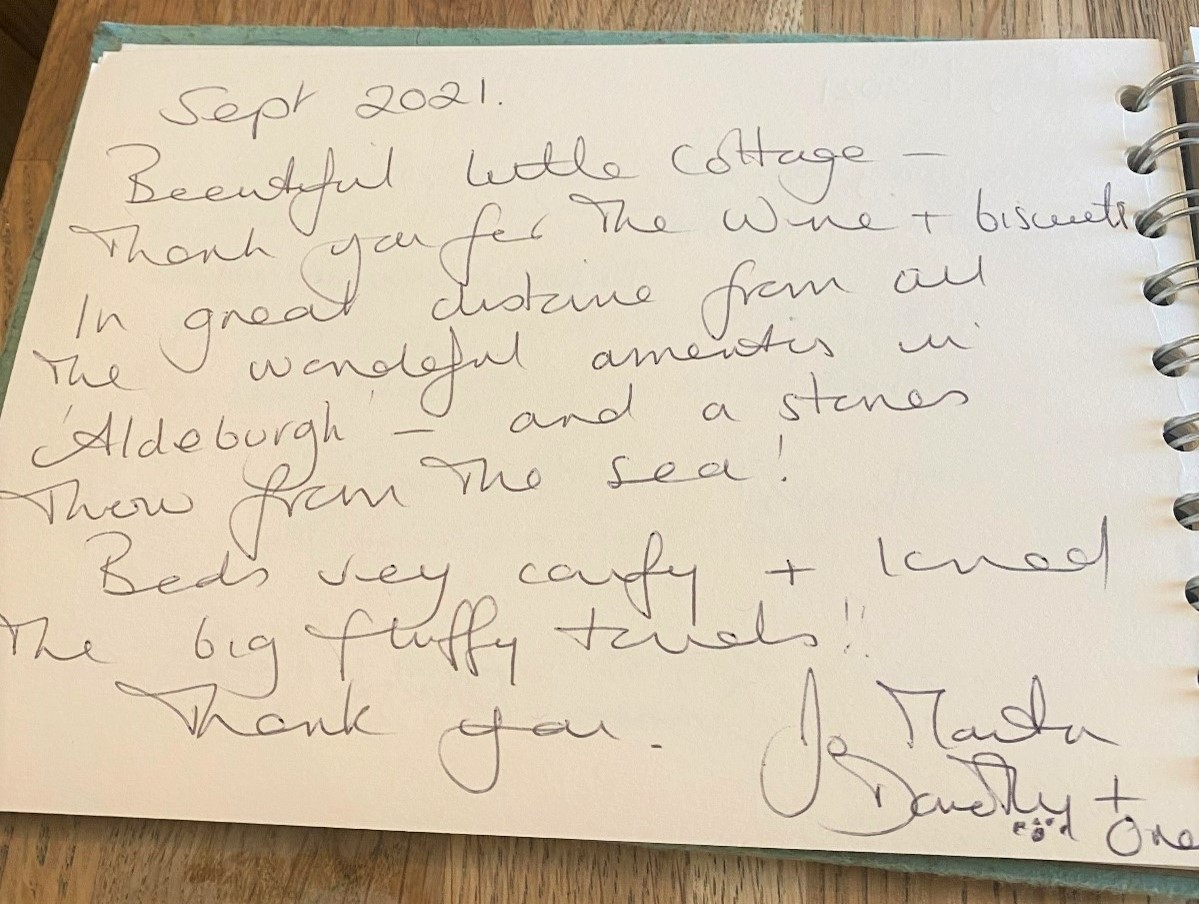 Sept 2021.
Beautiful little cottage –
Thank you for the wine + biscuits
In great distance from all
the wonderful amenities in
'Aldeburgh' – and a stones
throw from the sea!
Beds very comfy + loved
the big fluffy towels!!
Thank you. Jo Martin
Dorothy +